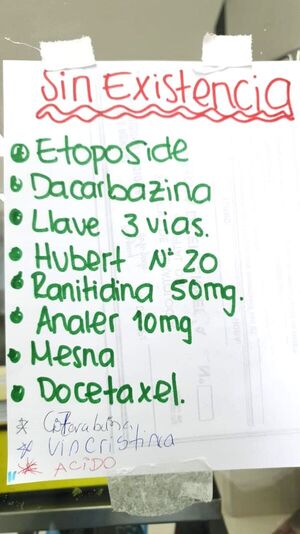 Sin Existencia
Etoposide
Dacarbazina
Llave 3 vias.
Hubert Nº 20
Ranitidina 50mg.
Analer 10mg
Mesna
Docetaxel.
vincristina
ACIDO